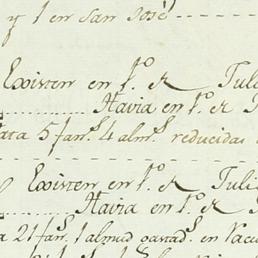 y 1 en san José
Existen en 1.º de Juli
Havia en 1.º de J
ata 5 fan.s 4 alm.s reducidas
Existen en 1.º de Juli
Havia en 1.º de J
a 21 fan.s 1 almud gastad.s en Vacu